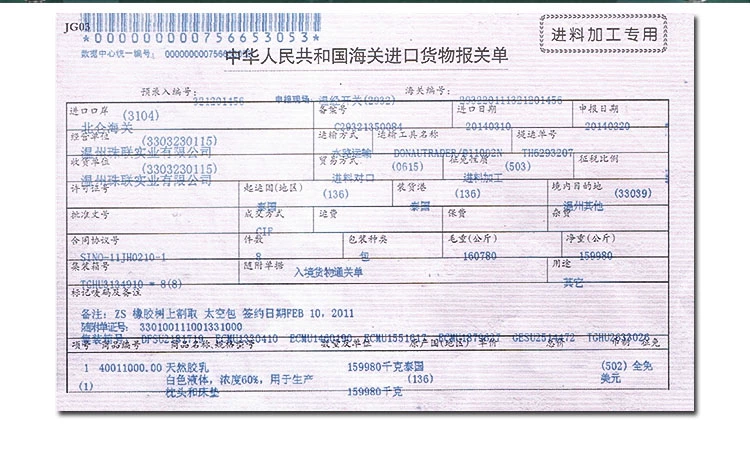 JG03
*0000000000756653053*
进料加工专用
数据中心统一编号:
中华人民共和国海关进口货物报关单
预录入编号: 321201456 申报现场: 温经开关(2932) 海关编号: 293220111321201456
进口口岸 (3104) 备案号 进口日期 申报日期
北仑海关 C29321350084 20140310 20140320
经营单位 (3303230115) 运输方式 运输工具名称 提运单号
温州珠联实业有限公司 水路运输 TH6293207
收货单位 (3303230115) 贸易方式 (0615) 征免性质 (503) 征税比例
温州珠联实业有限公司 进料对口 进料加工
许可证号 起运国(地区) (136) 装货港 (136) 境内目的地 (33039)
泰国 泰国 温州其他
批准文号 成交方式 运费 保费 杂费
CIF
合同协议号 件数 包装种类 毛重(公斤) 净重(公斤)
SINO-11JH0210-1 8 包 160780 159980
集装箱号 随附单据 用途
TGHU3134910 = 8(8) 入境货物通关单 其它
标记唛码及备注
备注: ZS 橡胶树上割取 太空包 签约日期FEB 10, 2011
随附单证号: 330100111001331000
项号 商品编号 商品名称,规格型号 数量及单位 原产国(地区) 单价 总价 币制 征免
1 40011000.00 天然胶乳 159980千克泰国 (502) 全免
白色液体，浓度60%，用于生产 (136) 美元
(1) 枕头和床垫 159980千克